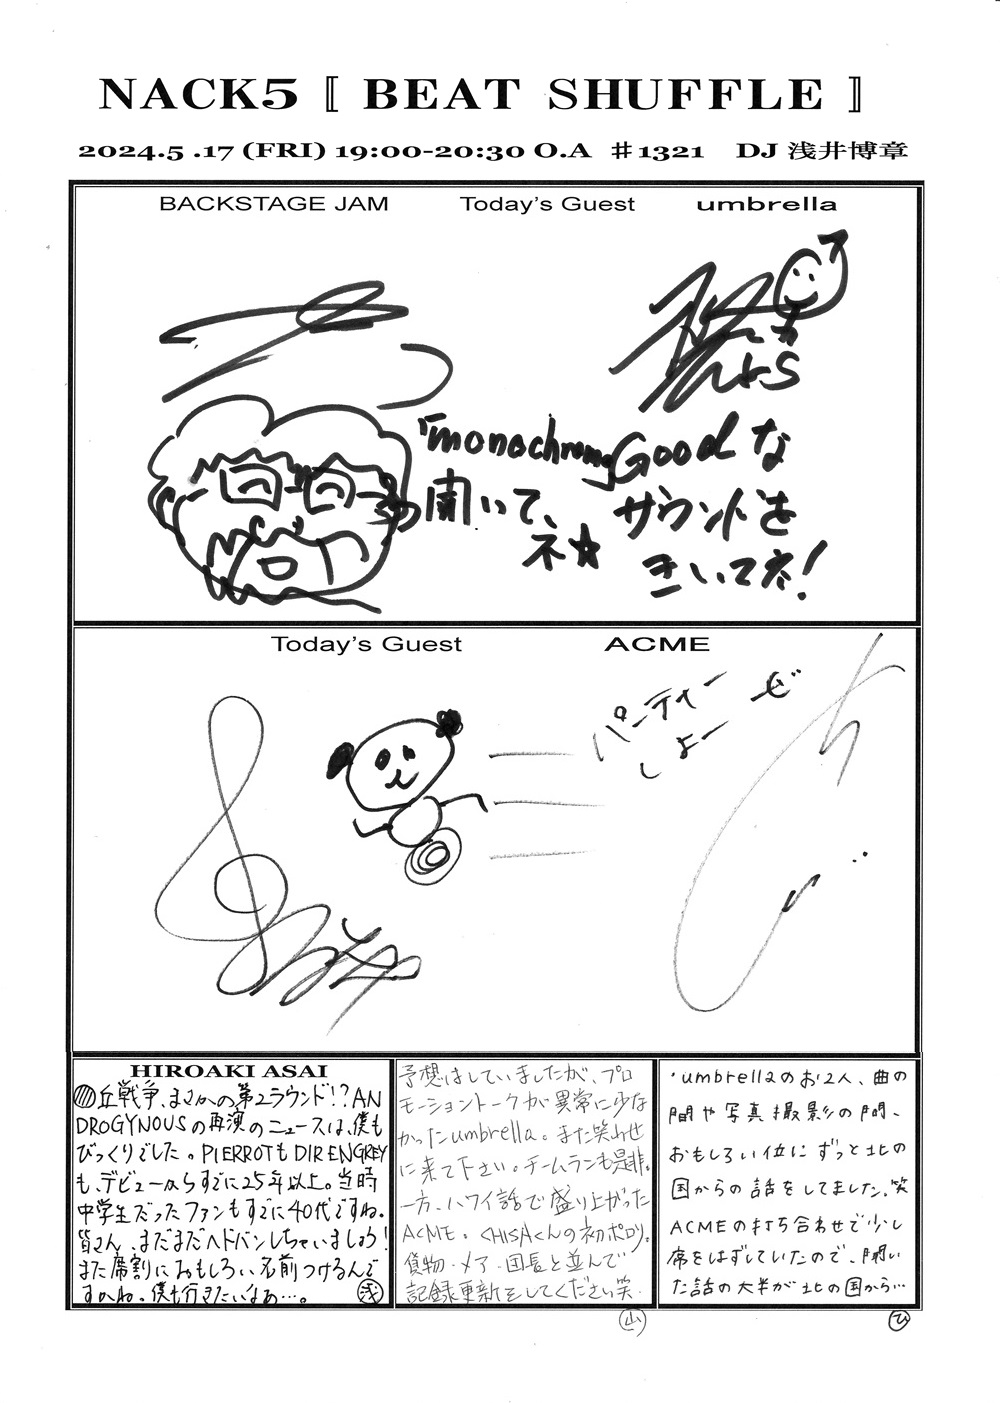 NACK5 〚 BEAT SHUFFLE 〛
2024.5 .17 (FRI) 19:00-20:30 O.A ♯1321 DJ 浅井博章
BACKSTAGE JAM Today's Guest umbrella
「monochrome」
聞いて、
ネ☆
Good な
サウンドを
きいてネ!
Today's Guest ACME
パーティー
しよーぜ
HIROAKI ASAI
丘戦争、まさかの第2ラウンド!?AN
DROGYNOUSの再演のニュースは、僕も
びっくりでした。PIERROTもDIR EN GREY
も、デビューからすでに25年以上。当時
中学生だったファンもすでに40代ですね。
皆さん、まだまだヘドバンしちゃいましょう!
また席割におもしろい名前つけるんで
すかね。僕も行きたいなあ…。
浅
予想はしていましたが、プロ
モーショントークが異常に少な
かったumbrella。また笑わせ
に来て下さい。チームランも是非。
一方、ハワイ話で盛り上がった
ACME。CHISAくんの初ポロリ。
貨物・メア・団長と並んで
記録更新をしてください笑
山
・umbrellaのお2人、曲の
間や写真撮影の間、
おもしろい位にずっと北の
国からの話をしてました。笑
ACMEの打ち合わせで少し
席をはずしていたので、聞い
た話の大半が北の国から…
ひ